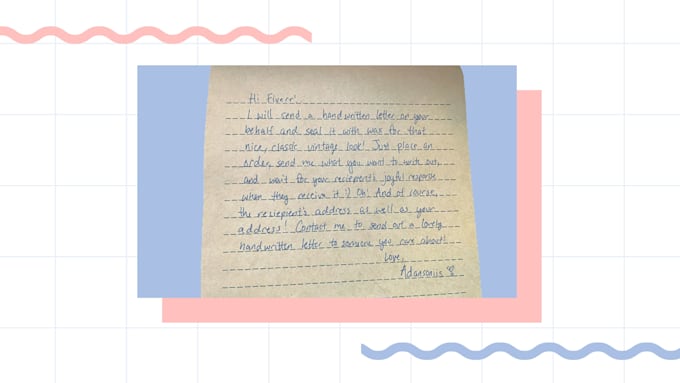 Hi Fiverr!
I will send a handwritten letter on your
behalf and seal it with wax for that
nice, classic vintage look! Just place an
order, send me what you want to write out,
and wait for your reciepient's joyful response
when they receive it :) Oh! And of course,
the reciepient's address as well as your
address! Contact me to send out a lovely
handwritten letter to someone you care about!
Love,
Adansoniis